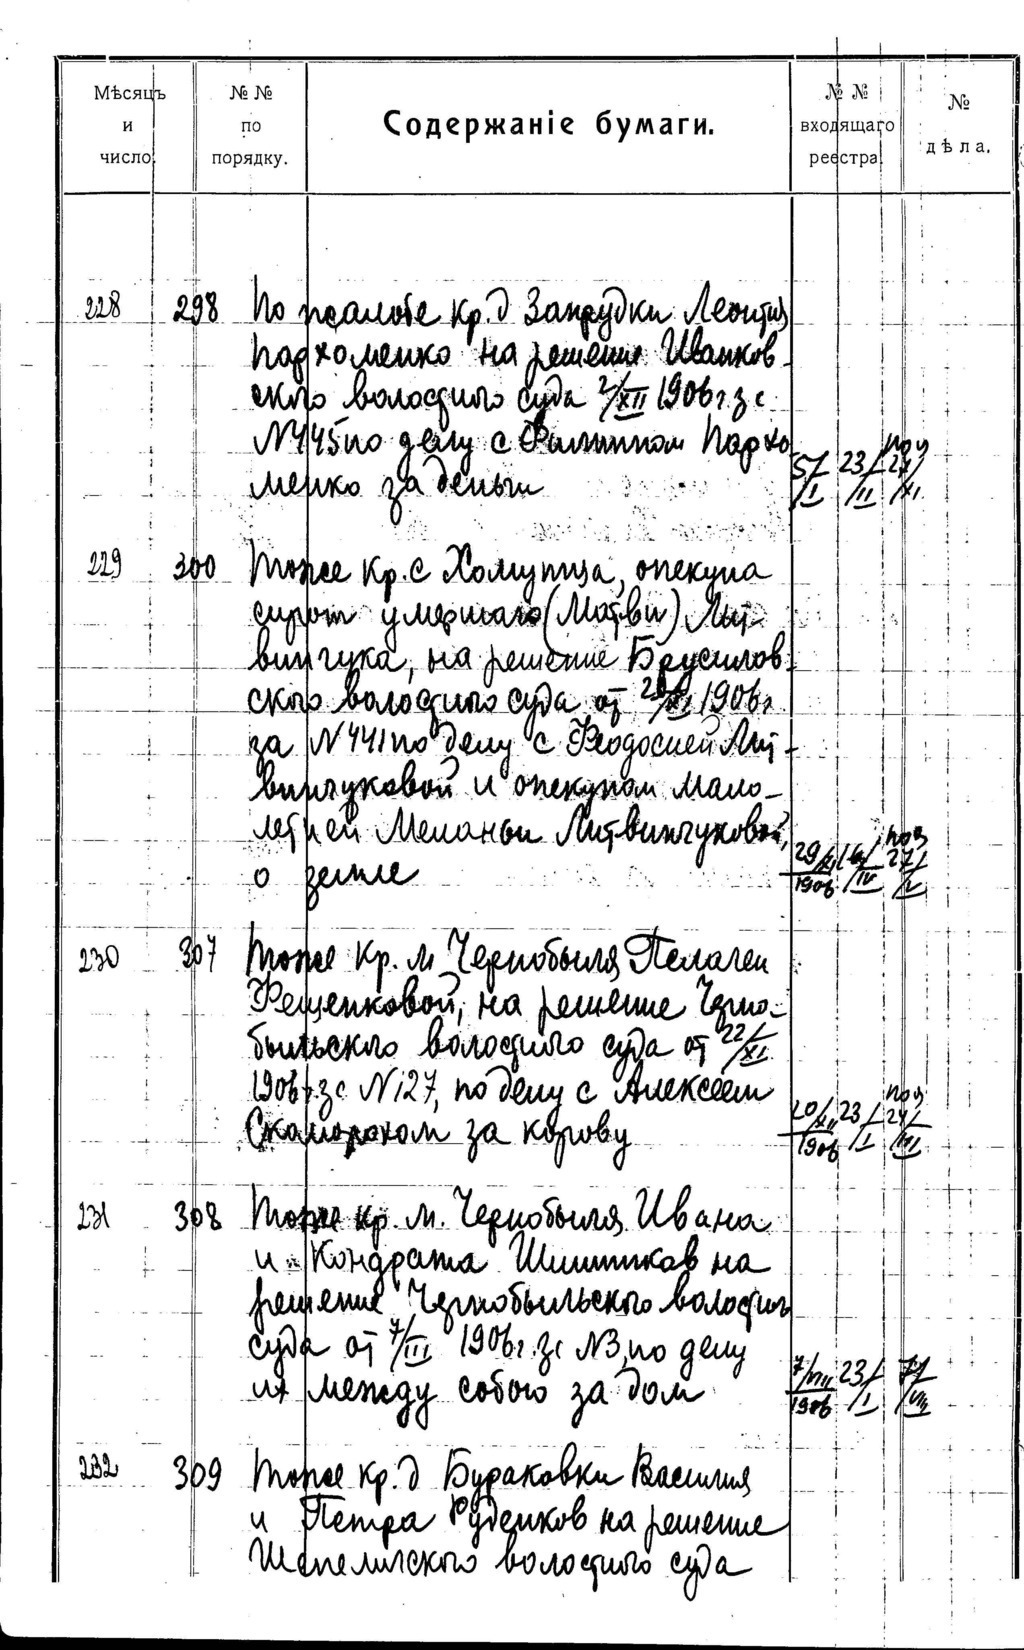 Мѣсяцъ и число.
№ № по порядку.
Содержаніе бумаги.
№ № входящаго реестра.
№ дѣла.
228 298 По жалобе кр. д Запрудки Леонтия
Пархоменко на решение Иванков-
ского волостного суда 2/XII 1906 г за
N 445 по делу с Филиппом Пархо-
менко за деньги
5/I 23/II 27/XI
229 300 Тоже кр. с Хомутца, опекуна
сирот умершаго (Матвія) Лит-
винчука, на решение Брусилов-
ского волостного суда от 1906 г
за N 441 по делу с Феодосией Лит-
винчуковой и опекуном мало-
летней Меланьи Литвинчуковой,
о земле
29/XI 1906 16/IV 27/V
230 307 Тоже кр. м Чернобыля Пелагеи
Фещенковой, на решение Черно-
быльского волостного суда от 22/XI
1906 г за N 127, по делу с Алексеем
Скаморохом за корову
20/XII 1906 23/I
231 308 Тоже кр. м. Чернобыля Ивана
и Кондрата Шишитков на
решение Чернобыльского волостн
суда от 7/III 1906 г. за N3, по делу
их между собою за дом
7/VIII 1906 23/I 7/VIII
232 309 Тоже кр. д Бураковки Василия
и Петра Руденков на решение
Шепеличского волостного суда